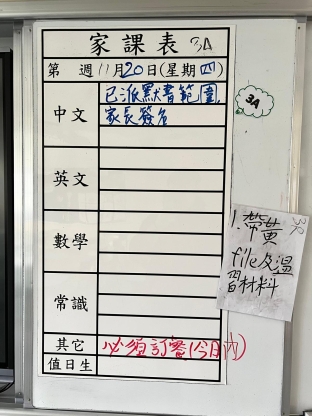 家課表 3A
第 週 11月20日(星期四)
中文
已派默書範圍,
家長簽名
英文
數學
常識
其它
必須訂餐(今日內)
值日生
3A
3A
1. 帶黃
file及溫
習材料